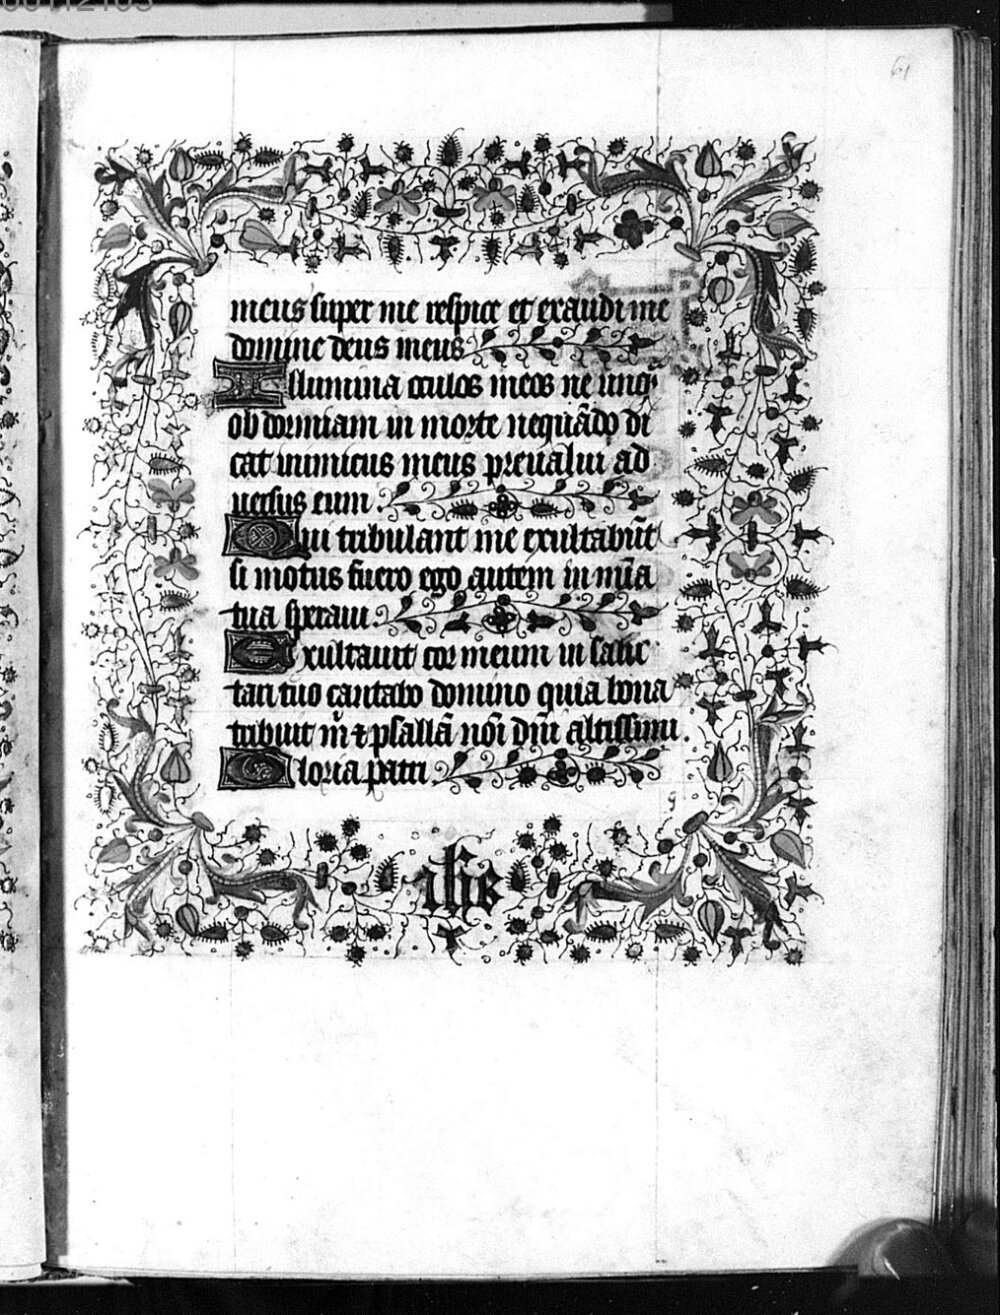 00112103
61
meus super me respice et exaudi me
domine deus meus
Illumina oculos meos ne unq̃
ob dormiam in morte nequãdo di
cat inimicus meus preualui ad
uersus eum .
Qui tribulant me exultabũt
si motus fuero ego autem in mĩa
tua speraui .
Exultauit cor meum in salu
tari tuo cantabo domino quia bona
tribuit m̃ ⁊ psallã noĩ dñi altissimi .
Gloria patri .
ihs